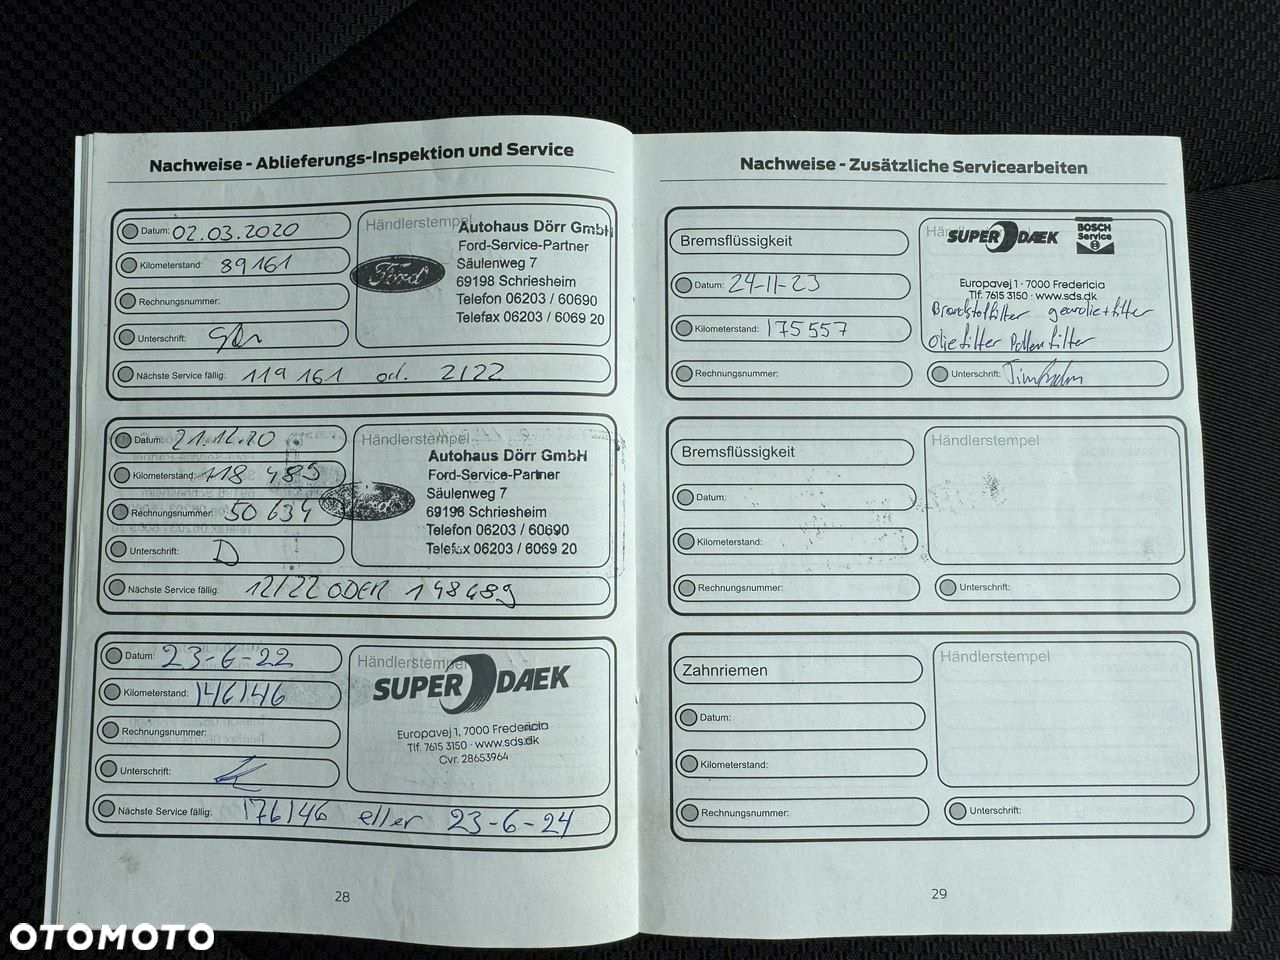 Nachweise - Ablieferungs-Inspektion und Service
Datum: 02.03.2020
Kilometerstand: 89161
Rechnungsnummer:
Unterschrift:
Händlerstempel
Ford
Autohaus Dörr GmbH
Ford-Service-Partner
Säulenweg 7
69198 Schriesheim
Telefon 06203 / 60690
Telefax 06203 / 6069 20
Nächste Service fällig: 119 161 od. 2/22
Datum: 21.12.20
Kilometerstand: 118 489
Rechnungsnummer: 50 634
Unterschrift: D
Händlerstempel
Ford
Autohaus Dörr GmbH
Ford-Service-Partner
Säulenweg 7
69198 Schriesheim
Telefon 06203 / 60690
Telefax 06203 / 6069 20
Nächste Service fällig: 12/22 ODER 148489
Datum: 23-6-22
Kilometerstand: 146146
Rechnungsnummer:
Unterschrift:
Händlerstempel
SUPER DÆK
Europavej 1, 7000 Fredericia
Tlf. 7615 3150 · www.sds.dk
Cvr. 28653964
Nächste Service fällig: 176146 eller 23-6-24
28
Nachweise - Zusätzliche Servicearbeiten
Bremsflüssigkeit
Datum: 24-11-23
Kilometerstand: 175557
Rechnungsnummer:
Händ
SUPER DÆK
BOSCH
Service
Europavej 1 · 7000 Fredericia
Tlf. 7615 3150 · www.sds.dk
Brændstoffilter gearolie+filter
Oliefilter Pollenfilter
Unterschrift:
Bremsflüssigkeit
Datum:
Kilometerstand:
Rechnungsnummer:
Händlerstempel
Unterschrift:
Zahnriemen
Datum:
Kilometerstand:
Rechnungsnummer:
Händlerstempel
Unterschrift:
29
OTOMOTO